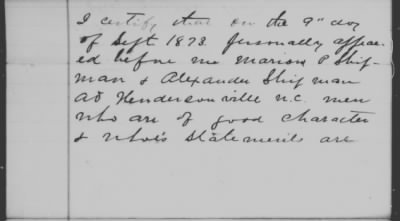 I certify that on the 9" day
of Sept 1873 personally appea-
red before me Marion P Ship-
man & Alexander Shipman
at Hendersonville N.C. men
who are of good character
& whose statements are